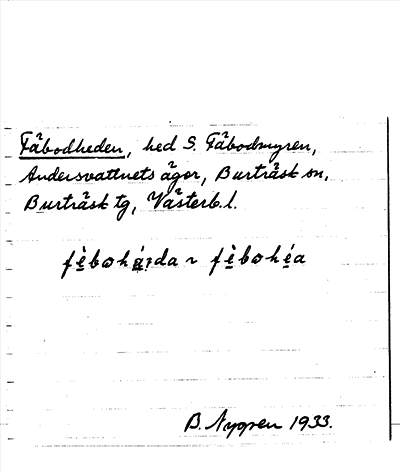 Fäbodheden, hed S. Fäbodmyren,
Andersvattnets ägor, Burträsk sn,
Burträsk tg, Västerb. l.
B. Nygren 1933.